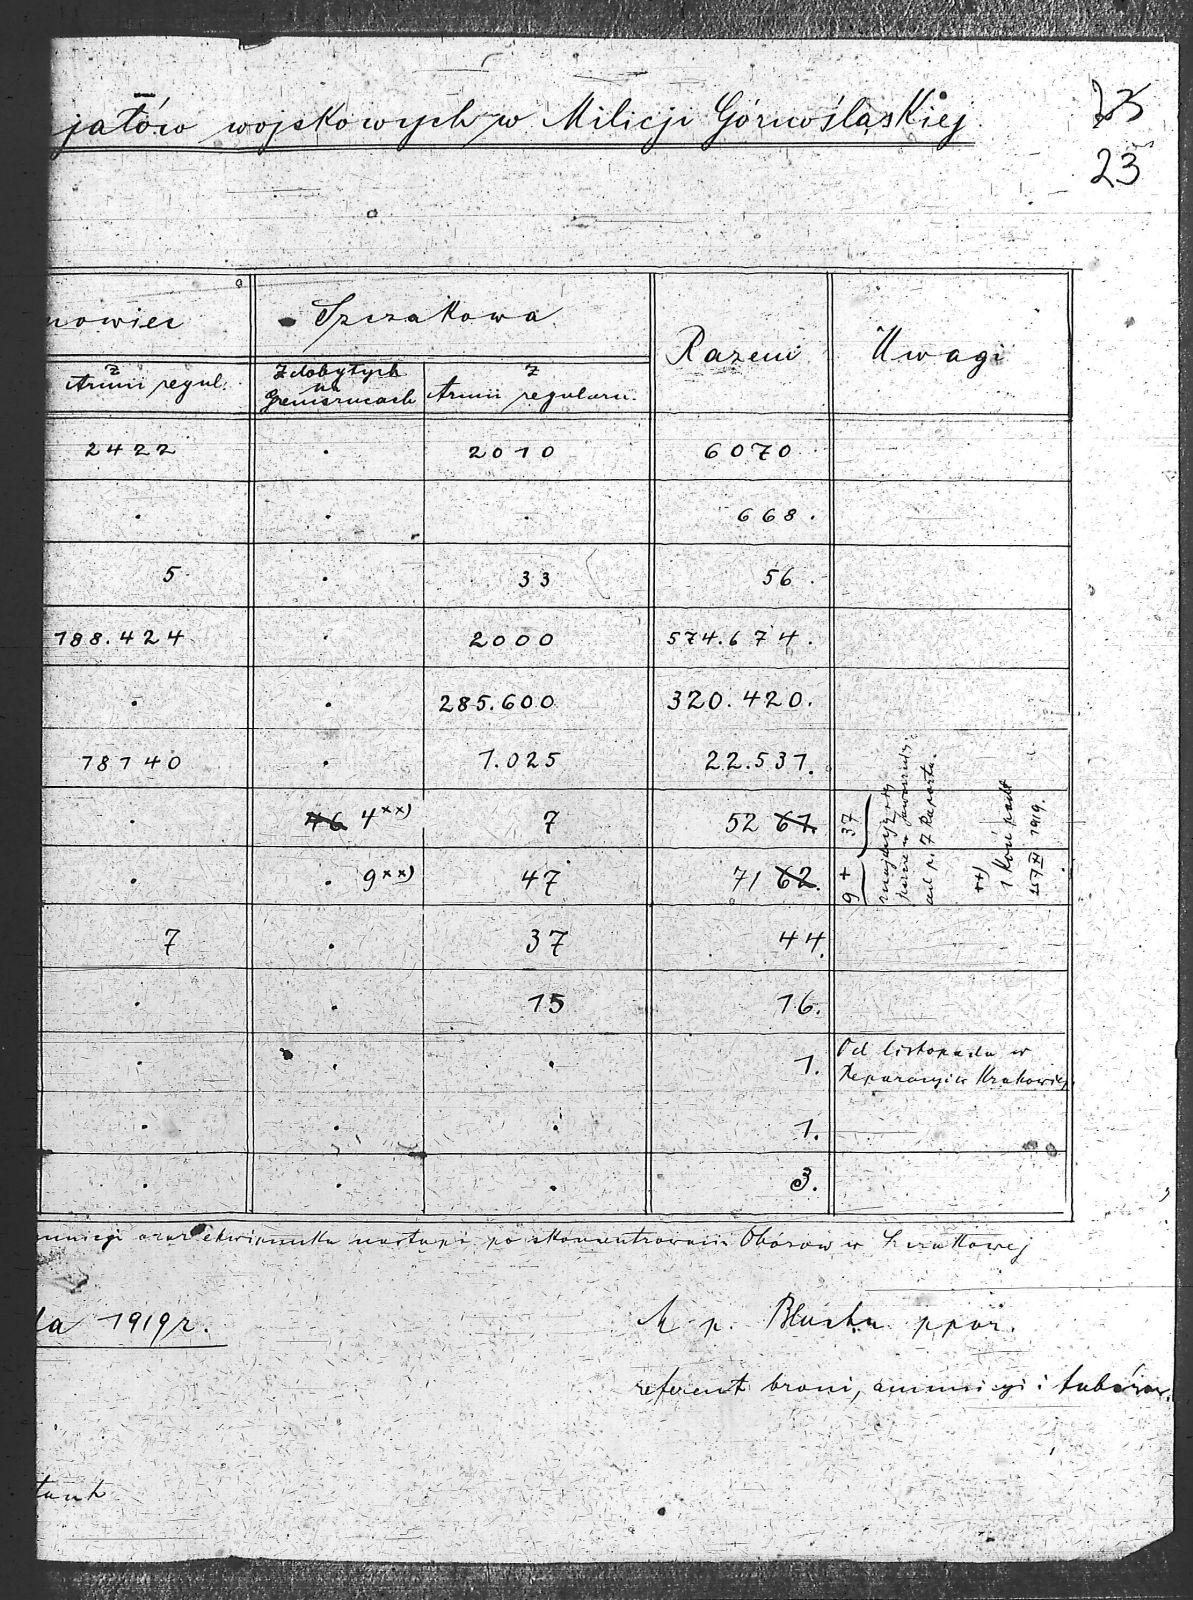 jałów wojskowych w Milicji Górnośląskiej
23
nowiec Szczakowa Razem Uwagi
z Armii regul. Zdobytych na Grenszucach z Armii regularn.
2422 . 2010 6070
. . . 668.
5 . 33 56.
188.424 . 2000 574.674.
. . 285.600 320.420.
18140 . 1.025 22.531.
. 46 4xx) 7 52 67.
. . 9xx) 47 71 62.
9 + 37
ad p. 7 Raportu.
++)
1 Koń padł
25/XI 1919.
7 . 37 44.
. . 15 16.
. . . 1. Od listopada w
Reparacyi w Krakowie
. . . 1.
. . . 3.
municyi oraz ekwipunku nastąpi po skoncentrowaniu Obozów w Szczakowej
da 1919 r.
M p. ppor.
referent broni, amunicyi i taborów.